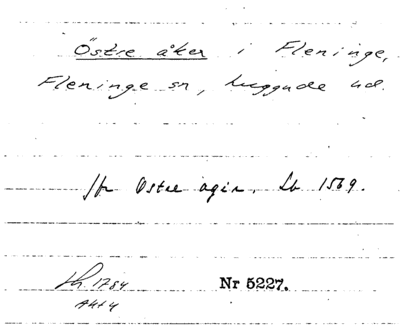 Östre åker i Fleninge,
Fleninge sn, Luggude hd.
Jfr Östre agir. Lb 1569.
Sk. 1784
Akt 4
Nr 5227.